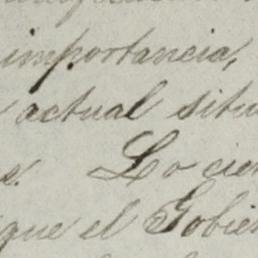 importancia,
actual situ
Lo cier
que el Gobier